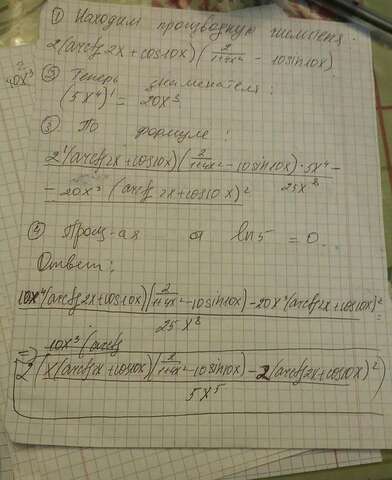 ① Находим производную числителя.
2(arctg 2x + cos10x)(2/(1+4x²) - 10sin10x)
② Теперь знаменателя:
(5x⁴)' = 20x³
③ По формуле:
2(arctg 2x + cos10x)(2/(1+4x²) - 10sin10x)·5x⁴ -
- 20x³ (arctg 2x + cos10x)²
25x⁸
④ Произ-ая от ln5 = 0.
Ответ:
10x⁴(arctg 2x + cos10x)(2/(1+4x²) - 10sin10x) - 20x³(arctg 2x + cos10x)² =
25x⁸
=> 10x³(arctg
2(x(arctg 2x + cos10x)(2/(1+4x²) - 10sin10x) - 2(arctg 2x + cos10x)²)
5x⁵